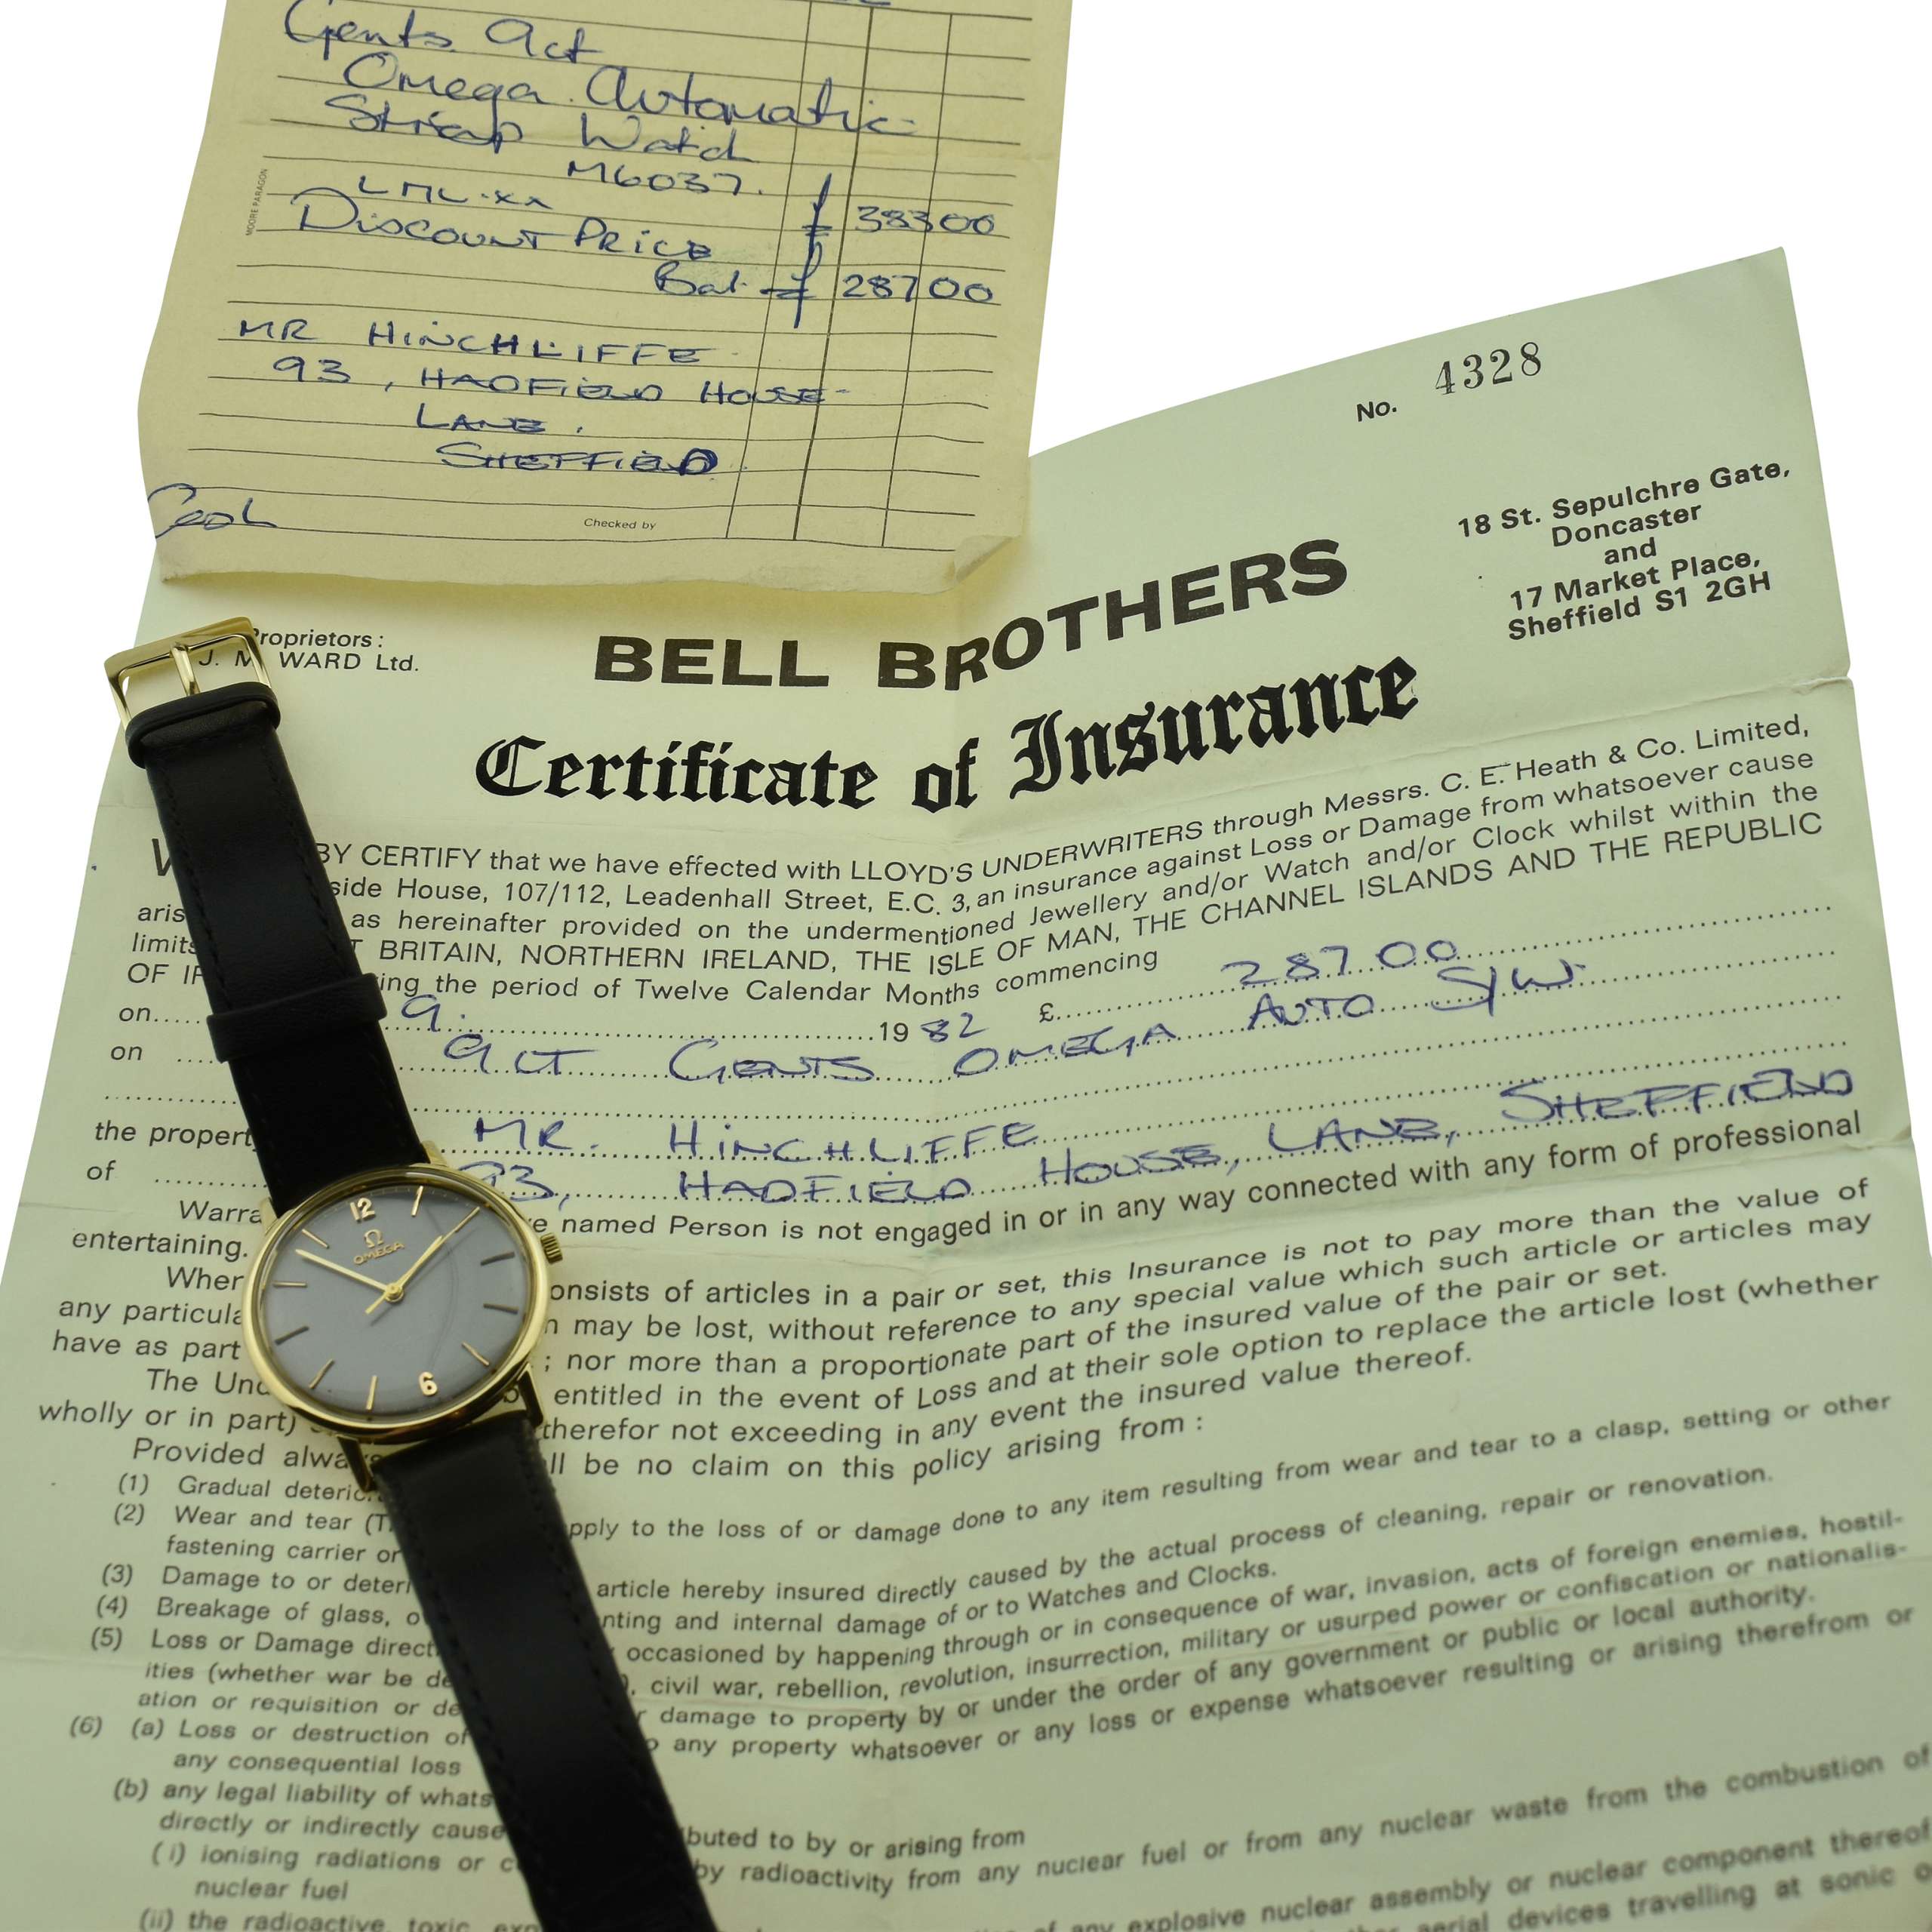 Gents 9ct
Omega Automatic
Strap Watch
M6037.
£ 38300
DISCOUNT PRICE
Bal. £ 28700
MR HINCHLIFFE
93, HADFIELD HOUSE
LANE.
SHEFFIELD
MOORE PARAGON
Checked by
No. 4328
18 St. Sepulchre Gate,
Doncaster
and
17 Market Place,
Sheffield S1 2GH
Proprietors:
J. M. WARD Ltd.
BELL BROTHERS
Certificate of Insurance
BY CERTIFY that we have effected with LLOYD'S UNDERWRITERS through Messrs. C. E. Heath & Co. Limited,
side House, 107/112, Leadenhall Street, E.C. 3, an insurance against Loss or Damage from whatsoever cause
aris as hereinafter provided on the undermentioned Jewellery and/or Watch and/or Clock whilst within the
limits T BRITAIN, NORTHERN IRELAND, THE ISLE OF MAN, THE CHANNEL ISLANDS AND THE REPUBLIC
OF IR ing the period of Twelve Calendar Months commencing
on 9. 1982 £ 28700
on 9CT GENTS OMEGA AUTO S/W.
the propert MR. HINCHLIFFE
of 93, HADFIELD HOUSE, LANE, SHEFFIELD
Warra e named Person is not engaged in or in any way connected with any form of professional
entertaining.
Wher onsists of articles in a pair or set, this Insurance is not to pay more than the value of
any particula n may be lost, without reference to any special value which such article or articles may
have as part ; nor more than a proportionate part of the insured value of the pair or set.
The Und entitled in the event of Loss and at their sole option to replace the article lost (whether
wholly or in part) therefor not exceeding in any event the insured value thereof.
Provided alway ll be no claim on this policy arising from :
(1) Gradual deterio
(2) Wear and tear (T pply to the loss of or damage done to any item resulting from wear and tear to a clasp, setting or other
fastening carrier or
(3) Damage to or deteri article hereby insured directly caused by the actual process of cleaning, repair or renovation.
(4) Breakage of glass, o nting and internal damage of or to Watches and Clocks.
(5) Loss or Damage direct occasioned by happening through or in consequence of war, invasion, acts of foreign enemies, hostil-
ities (whether war be de ), civil war, rebellion, revolution, insurrection, military or usurped power or confiscation or nationalis-
ation or requisition or de r damage to property by or under the order of any government or public or local authority.
(6) (a) Loss or destruction of o any property whatsoever or any loss or expense whatsoever resulting or arising therefrom or
any consequential loss
(b) any legal liability of whats
directly or indirectly cause buted to by or arising from
(i) ionising radiations or c by radioactivity from any nuclear fuel or from any nuclear waste from the combustion of
nuclear fuel
(ii) the radioactive, toxic, exp of any explosive nuclear assembly or nuclear component thereof
aerial devices travelling at sonic o
12
Ω
OMEGA
6